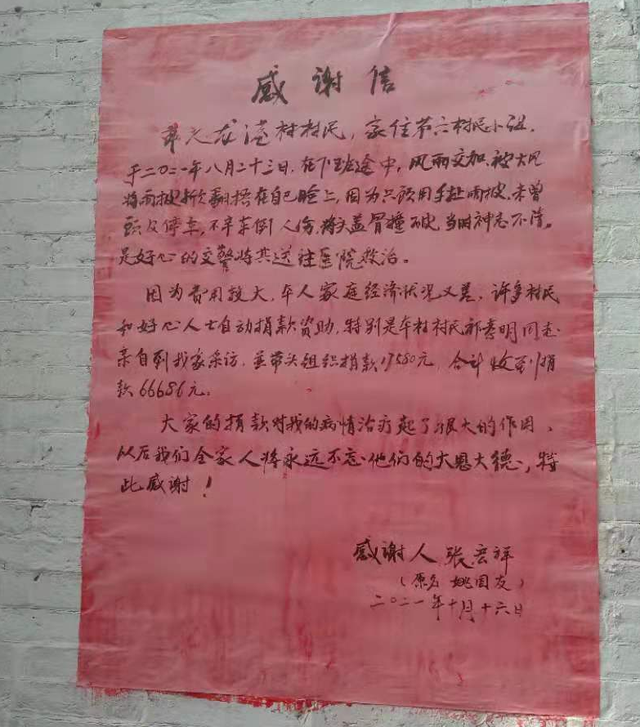 感谢信
龙湾村村民，家住第六村民小组，
于二〇二一年八月二十三日，在下班途中，风雨交加，被大风
将雨披掀翻捂在自己脸上，因为只顾用手扯雨披，未曾
停车，不幸车倒人伤，将头盖骨撞破，当时神志不清。
是好心的交警将其送往医院救治。
因为费用较大，本人家庭经济状况又差，许多村民
和好心人士自动捐款资助，特别是本村村民祁春明同志
亲自到我家采访，并带头组织捐款17580元，合计收到捐
款66686元。
大家的捐款对我的病情治疗起了很大的作用，
以后我们全家人将永远不忘他们的大恩大德，特
此感谢！
感谢人 张宏祥
（原名 姚国友）
二〇二一年十月十六日